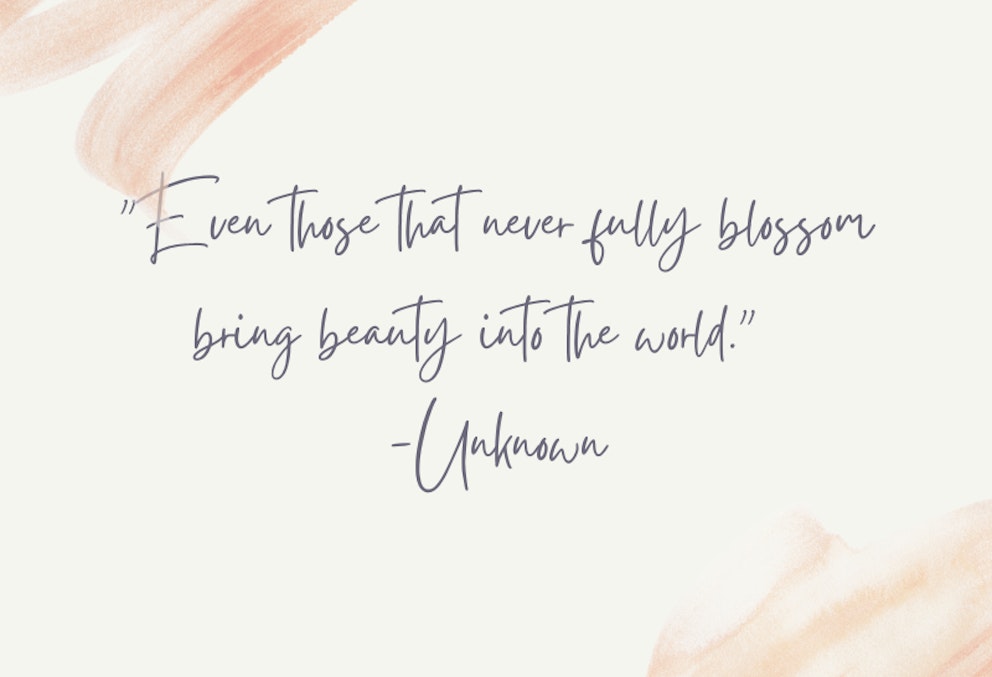 "Even those that never fully blossom
bring beauty into the world."
-Unknown